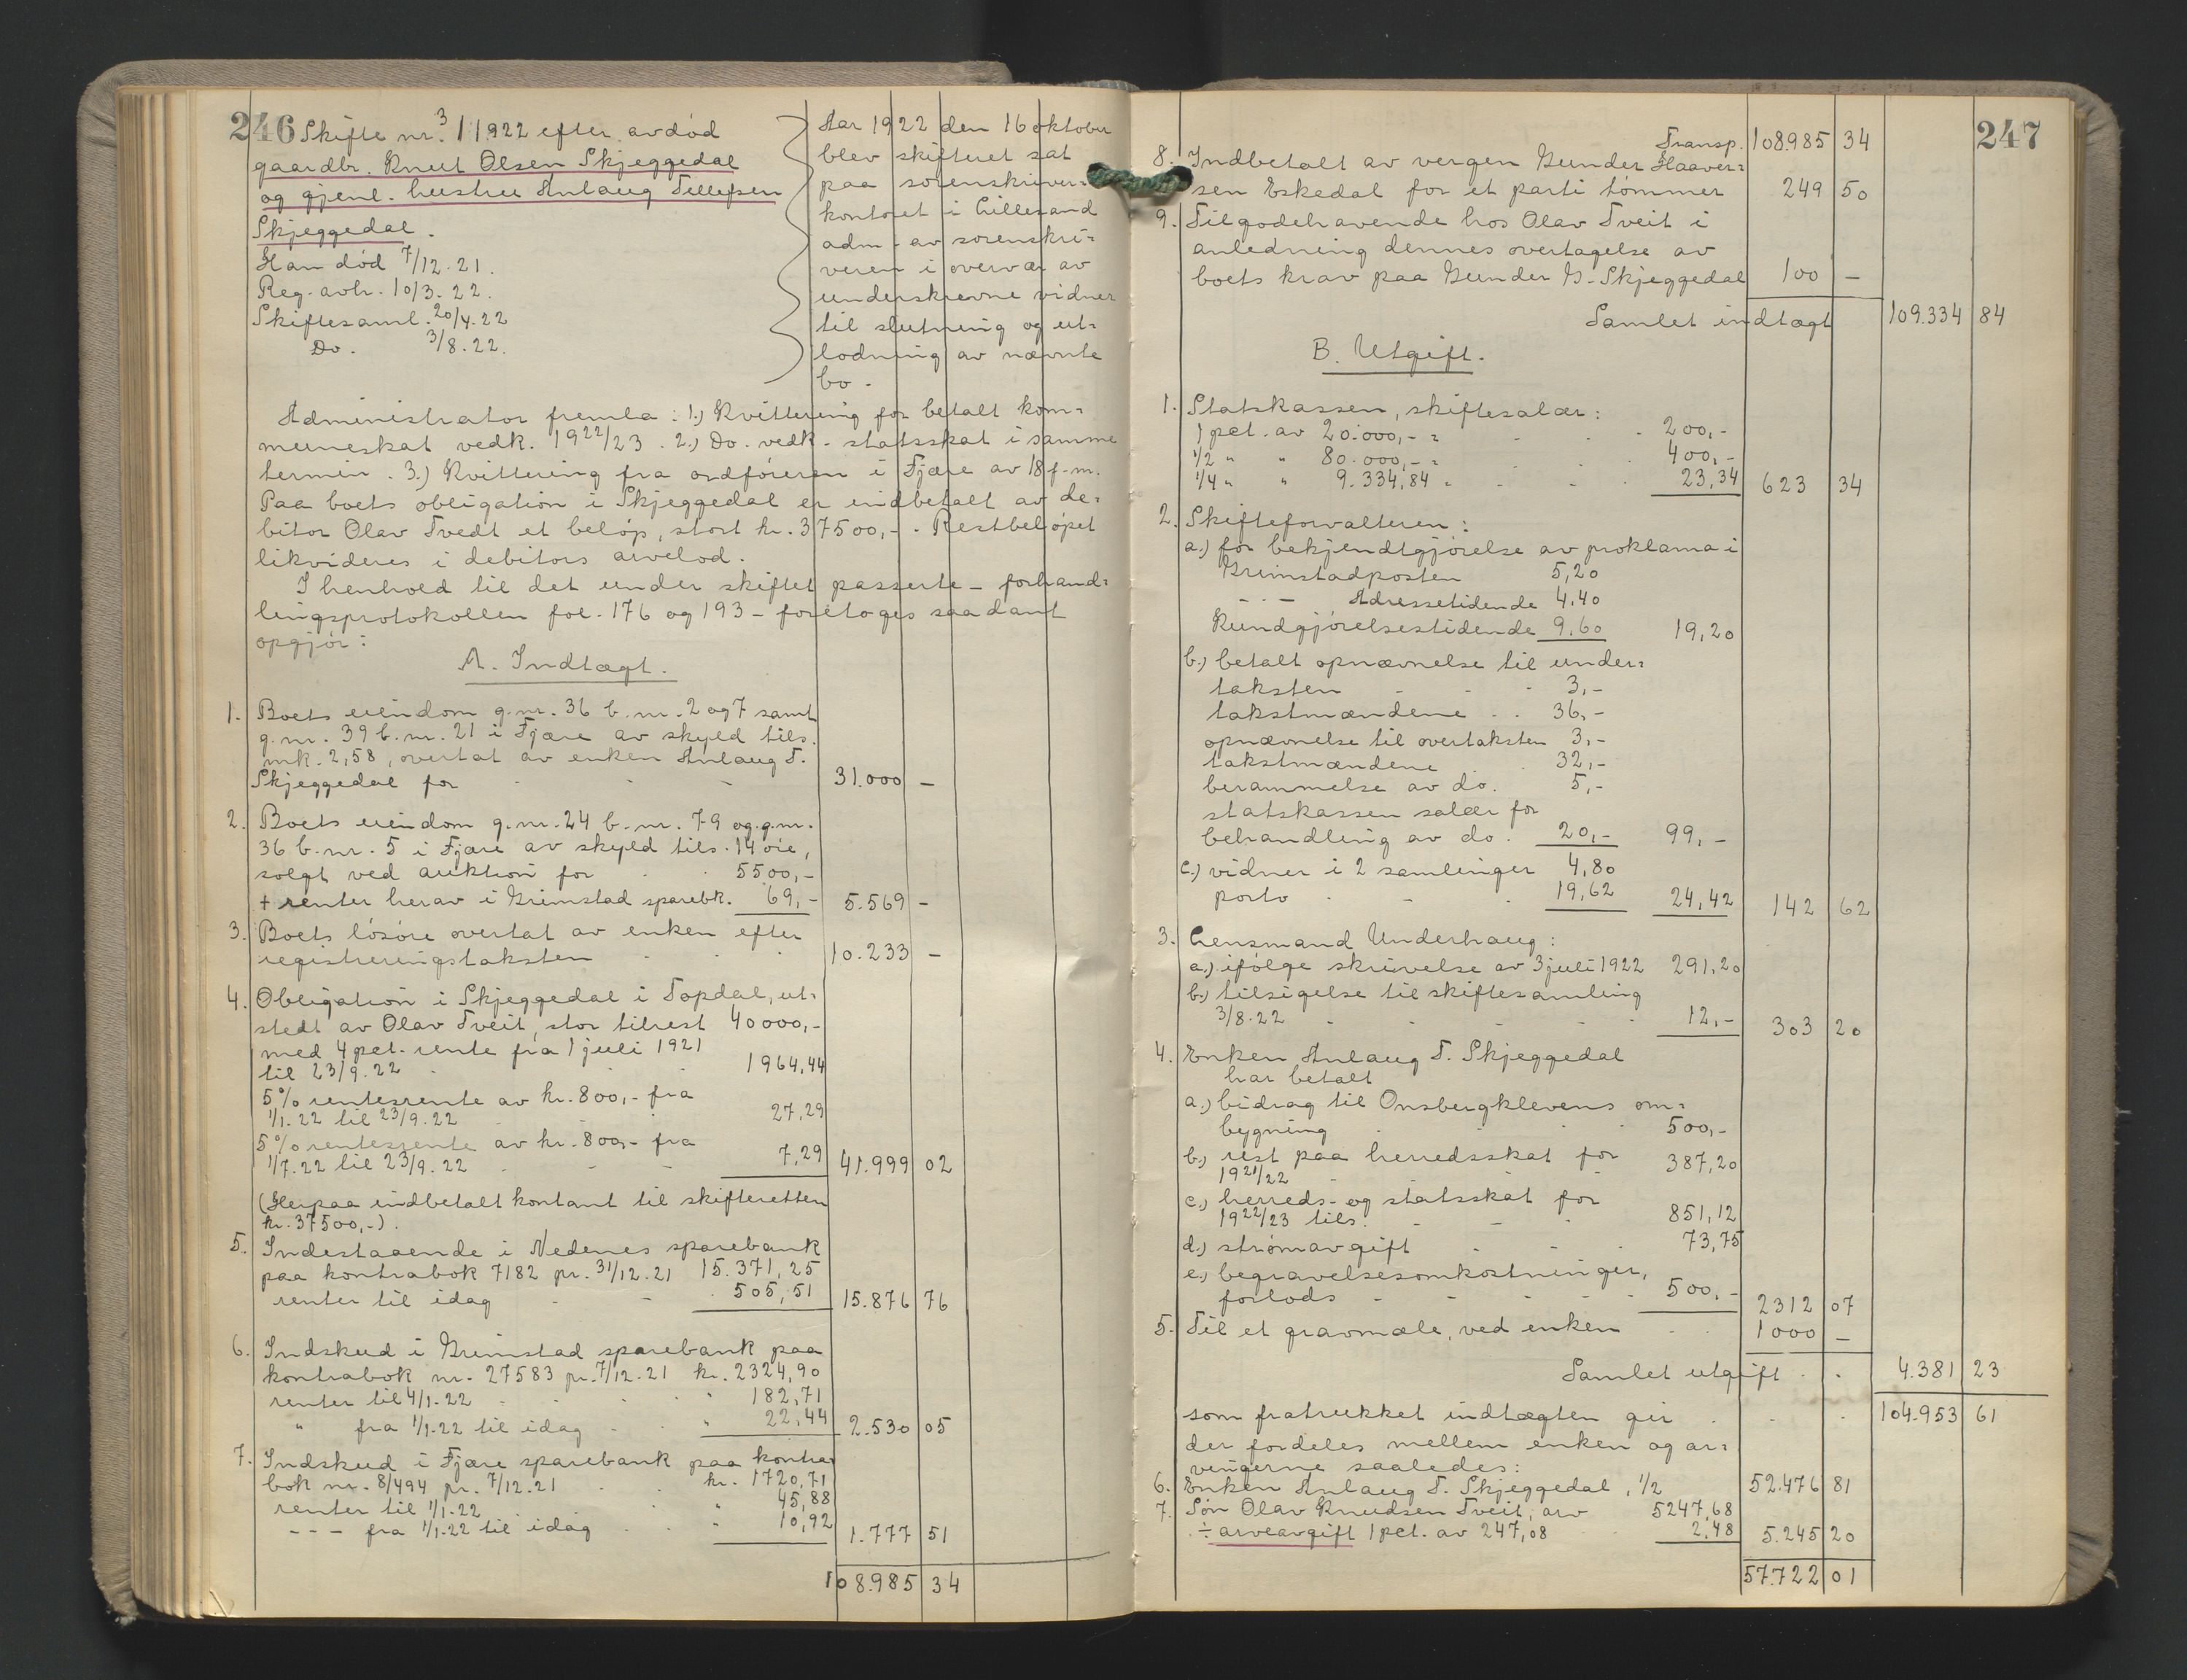 246 Skifte nr. 3/1922 efter avdöd
gaardbr. Knut Olsen Skjeggedal
og gjenl. hustru Anlaug Tellefsen
Skjeggedal.
Han död 7/12.21.
Reg. avh. 10/3.22.
Skiftesaml. 20/4.22
Do. 3/8.22.
Aar 1922 den 16 oktober
blev skifteret sat
paa sorenskriver-
kontoret i Lillesand
adm. av sorenskri-
veren i overvær av
underskrevne vidner
til slutning og ut-
lodning av nævnte
bo.
Administrator fremla: 1.) Kvittering for betalt kom-
muneskat vedk. 1922/23. 2.) Do. vedk. statsskat i samme
termin. 3.) Kvittering fra ordföreren i Fjære av 18 f.m.
Paa boets obligation i Skjeggedal er indbetalt av de-
bitor Olav Tvedt et belöp, stort kr. 37500,-. Restbelöpet
likvideres i debitors arvelod.
I henhold til det under skiftet passerte - forhand-
lingsprotokollen fol. 176 og 193 - foretoges saadant
opgjör:
A. Indtægt.
1. Boets eiendom g.nr. 36 b.nr. 2 og 7 samt
g.nr. 39 b.nr. 21 i Fjære av skyld tils.
mk. 2,58, overtat av enken Anlaug T.
Skjeggedal for - - 31.000 -
2. Boets eiendom g.nr. 24 b.nr. 79 og g.nr.
36 b.nr. 5 i Fjære av skyld tils. 14 öre,
solgt ved auktion for . . 5500,-
+ renter herav i Grimstad sparebk. 69,- 5.569 -
3. Boets lösöre overtat av enken efter
registreringstaksten . . . 10.233 -
4. Obligation i Skjeggedal i Topdal, ut-
stedt av Olav Tveit, stor tilrest 40000,-
med 4 pct. rente fra 1 juli 1921
til 23/9.22 . . 1964,44
5% rentesrente av kr. 800,- fra
1/1.22 til 23/9.22 . . 27,29
5% rentesrente av kr. 800,- fra
1/7.22 til 23/9.22 - - - 7,29 41.999 02
(Herpaa indbetalt kontant til skifteretten
kr. 37500,-).
5. Indestaaende i Nedenes sparebank
paa kontrabok 7182 pr. 31/12.21 15.371,25
renter til idag - - . 505,51 15.876 76
6. Indskud i Grimstad sparebank paa
kontrabok nr. 27583 pr. 7/12.21 kr. 2324,90
renter til 4/1.22 . . . " 182,71
" fra 1/1.22 til idag . . " 22,44 2.530 05
7. Indskud i Fjære sparebank paa kontra
bok nr. 8/494 pr. 7/12.21 . kr. 1720,71
renter til 1/1.22 . . " 45,88
- - - fra 1/1.22 til idag . . " 10,92 1.777 51
108.985 34
247
Transp. 108.985 34
8. Indbetalt av vergen Gunder Haaver-
sen Eskedal for et parti tömmer 249 50
9. Tilgodehavende hos Olav Tveit i
anledning dennes overtagelse av
boets krav paa Gunder G. Skjeggedal 100 -
Samlet indtægt 109.334 84
B. Utgift.
1. Statskassen, skiftesalær:
1 pct. av 20.000,- = . . . 200,-
1/2 " " 80.000,- = . . . 400,-
1/4 " " 9.334,84 = - - . 23,34 623 34
2. Skifteforvalteren:
a.) for bekjendtgjörelse av proklama i
Grimstadposten 5,20
- - - Adressetidende 4,40
Kundgjörelsestidende 9,60 19,20
b.) betalt opnævnelse til under-
taksten - - - 3,-
takstmændene . . 36,-
opnævnelse til overtaksten 3,-
takstmændene . . 32,-
berammelse av do. 5,-
statskassen salær for
behandling av do. 20,- 99,-
c.) vidner i 2 samlinger 4,80
porto . - . 19,62 24,42 142 62
3. Lensmand Underhaug:
a.) ifölge skrivelse av 3 juli 1922 291,20
b.) tilsigelse til skiftesamling
3/8.22 - - - - . 12,- 303 20
4. Enken Anlaug T. Skjeggedal
har betalt
a.) bidrag til Onsbergklevens om-
bygning . . . . 500,-
b.) rest paa herredsskat for
1921/22 - - - 387,20
c.) herreds- og statsskat for
1922/23 tils. - - . 851,12
d.) strömavgift . - . 73,75
e.) begravelsesomkostninger,
forlods - - - - 500,- 2312 07
5. Til et gravmæle, ved enken . . 1000 -
Samlet utgift . . 4.381 23
som fratrukket indtægten gir . . . 104.953 61
der fordeles mellem enken og ar-
vingerne saaledes:
6. Enken Anlaug T. Skjeggedal, 1/2 52.476 81
7. Sön Olav Knudsen Tveit, arv 5247,68
÷ arveavgift 1 pct. av 247,08 2,48 5.245 20
57.722 01